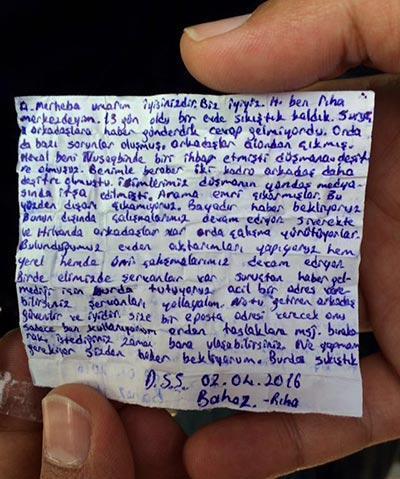 A. Merheba umarım iyisinizdir. Biz iyiyiz. H. ben Riha
merkezdeyim. 13 gün oldu bir evde sıkıştık kaldık. Suruç
arkadaşlara haber gönderdik cevap gelmiyordu. Orda
da bazı sorunlar oluşmuş, arkadaşlar alandan çıkmış.
Heval beni Nusaybinde bir ihbar etmişti düşmana deşifre
olmuşuz. Benimle beraber iki kadro arkadaş daha
deşifre olmuştu. İsimlerimiz düşmanın yandaş medya-
sında ifşa edilmişti. Arama emri çıkarmışlar. Bu
yüzden dışarı çıkamıyoruz. Bayadır haber bekliyoruz
Bunun dışında çalışmalarımız devam ediyor. Siverekte
ve Hilvanda arkadaşlar var orda çalışma yürütüyorlar.
Bulunduğumuz evden aktarımları yapıyoruz hem
yerel hemde çalışmalarımız devam ediyor.
Birde elimizde şervanlar var suruçtan haber gel-
mediği için burda tutuyoruz acil bir adres vere-
bilirseniz şervanları yollayalım. Notu getiren arkadaş
güvenilir ve iyidir. Size bir eposta adresi verecek onu
sadece ben kullanıyorum ordan taslaklara msj. bıraka-
rak, istediğiniz zaman bana ulaşabilirsiniz. Ne yapmam
gerekiyor sizden haber bekliyorum. Burda sıkıştık
D.S.S. 02.04.2016
Bahoz. -Riha